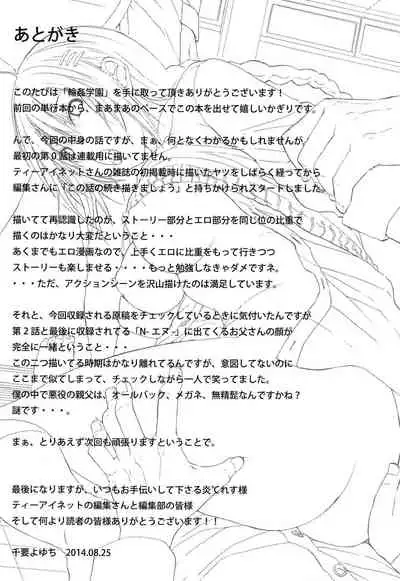 あとがき
このたびは「輪姦学園」を手に取って頂きありがとうございます!
前回の単行本から、まあまあのペースでこの本を出せて嬉しいかぎりです。
んで、今回の中身の話ですが、まぁ、何となくわかるかもしれませんが
最初の第0話は連載用に描いてません。
ティーアイネットさんの雑誌の初掲載時に描いたヤツをしばらく経ってから
編集さんに「この話の続き描きましょう」と持ちかけられスタートしました。
描いてて再認識したのが、ストーリー部分とエロ部分を同じ位の比重で
描くのはかなり大変だということ・・・
あくまでもエロ漫画なので、上手くエロに比重をもって行きつつ
ストーリーも楽しませる・・・・もっと勉強しなきゃダメですネ。
・・・ただ、アクションシーンを沢山描けたのは満足しています。
それと、今回収録される原稿をチェックしているときに気付いたんですが
第2話と最後に収録されてる「N-エヌ-」に出てくるお父さんの顔が
完全に一緒ということ・・・
この二つ描いてる時期はかなり離れてるんですが、意図してないのに
ここまで似てしまって、チェックしながら一人で笑ってました。
僕の中で悪役の親父は、オールバック、メガネ、無精髭なんですかね?
謎です・・・。
まぁ、とりあえず次回も頑張りますということで。
最後になりますが、いつもお手伝いして下さる炎てれす様
ティーアイネットの編集さんと編集部の皆様
そして何より読者の皆様ありがとうございます!!
千要よゆち 2014.08.25